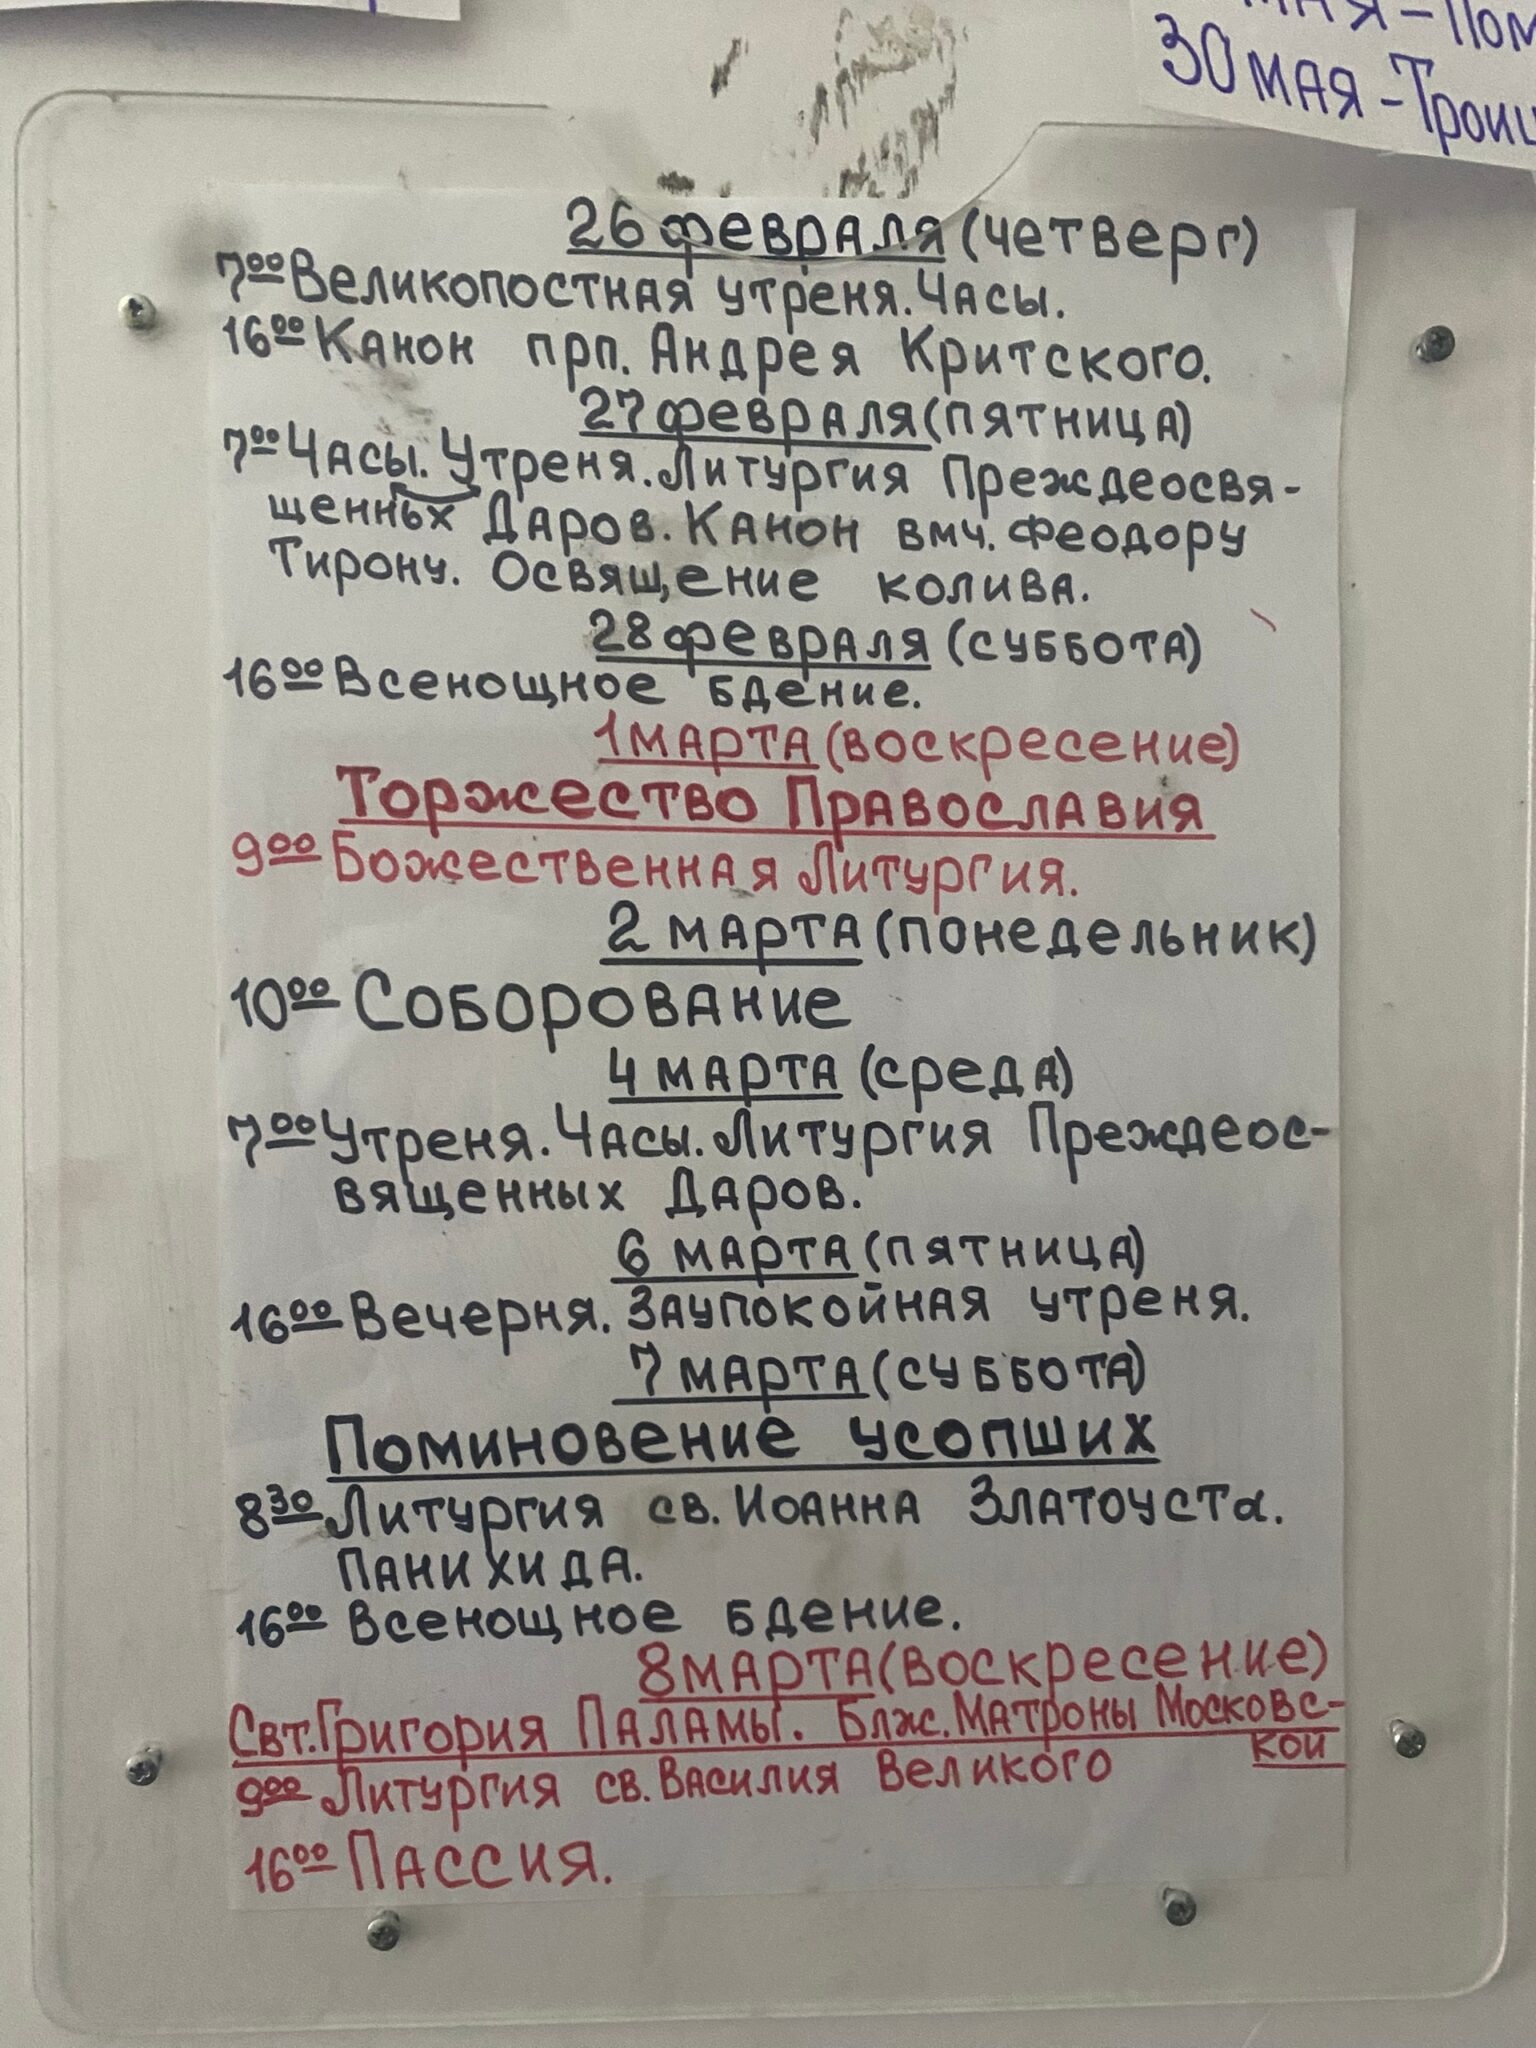 30 МАЯ - Троиц
26 февраля (четверг)
7⁰⁰ Великопостная утреня. Часы.
16⁰⁰ Канон прп. Андрея Критского.
27 февраля (пятница)
7⁰⁰ Часы. Утреня. Литургия Преждеосвя-
щенных Даров. Канон вмч. Феодору
Тирону. Освящение колива.
28 февраля (суббота)
16⁰⁰ Всенощное бдение.
1 марта (воскресение)
Торжество Православия
9⁰⁰ Божественная Литургия.
2 марта (понедельник)
10⁰⁰ Соборование
4 марта (среда)
7⁰⁰ Утреня. Часы. Литургия Преждеос-
вященных Даров.
6 марта (пятница)
16⁰⁰ Вечерня. Заупокойная утреня.
7 марта (суббота)
Поминовение усопших
8³⁰ Литургия св. Иоанна Златоуста.
Панихида.
16⁰⁰ Всенощное бдение.
8 марта (воскресение)
Свт. Григория Паламы. Блж. Матроны Московс-
кой
9⁰⁰ Литургия св. Василия Великого
16⁰⁰ Пассия.